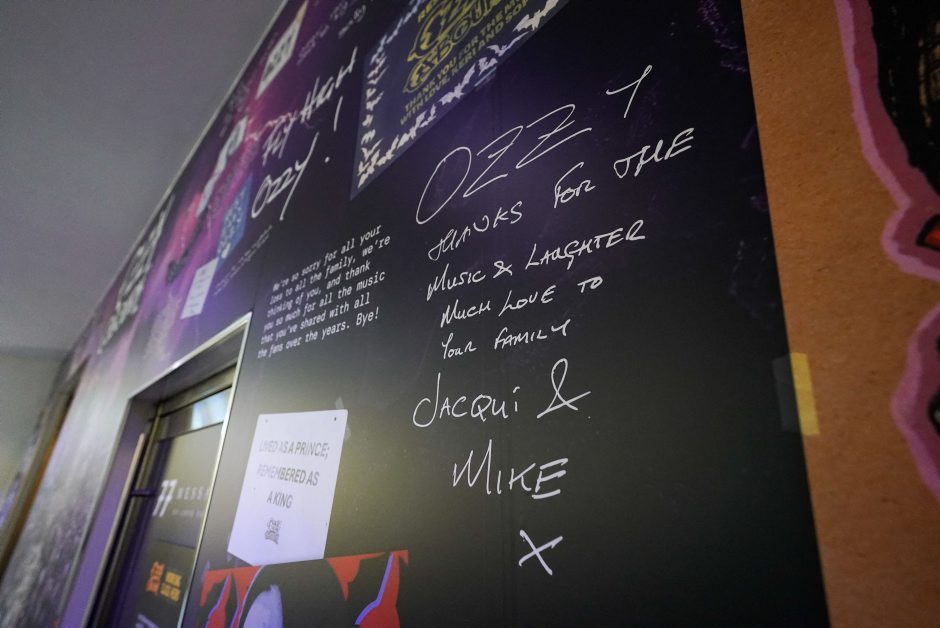 THANK YOU FOR THE MU
WITH LOVE, KERI AND SOP
FLY HIGH
OZZY!
OZZY
THANKS FOR THE
MUSIC & LAUGHTER
MUCH LOVE TO
YOUR FAMILY
JACQUI &
MIKE
X
We're so sorry for all your
loss to all the family, we're
thinking of you, and thank
you so much for all the music
that you've shared with all
the fans over the years. Bye!
LIVED AS A PRINCE;
REMEMBERED AS
A KING
WORKING
CLASS HERO